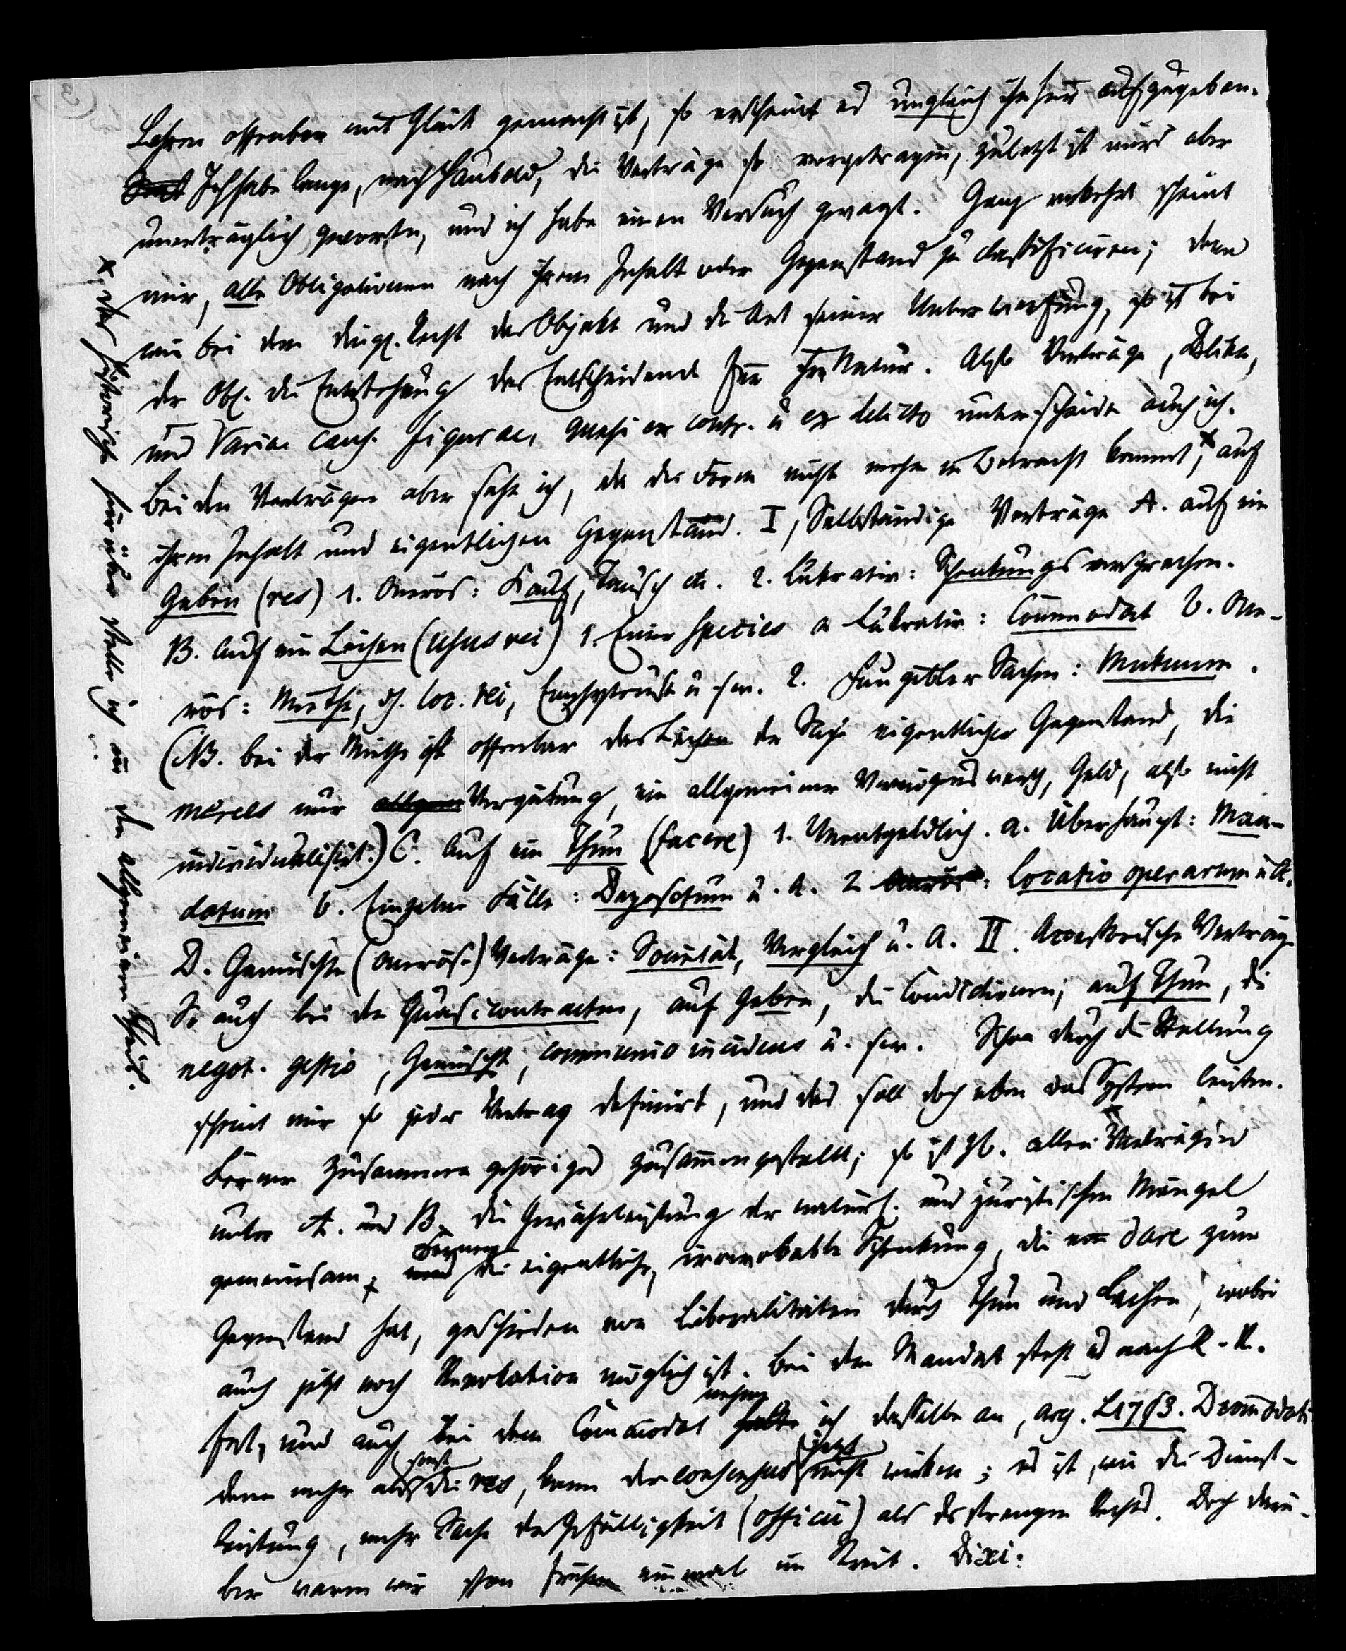 Lehren offenbar mit Glück gemacht ist, so erscheint es ungleich höher aufzugeben.
Ich habe lange, nach Haubold, die Verträge so vorgetragen, zuletzt ist mirs aber
unerträglich geworden, und ich habe einen Versuch gewagt. Ganz verkehrt scheint
mir, alle Obligationen nach ihrem Inhalt oder Gegenstand zu classificiren; denn
wie bei dem dingl. Recht das Objekt und die Art seiner Unterwerfung, so ist bei
der Obl. die Entstehung das Entscheidende für ihre Natur. Also Verträge, Delikte,
und Variae caus. figurae, quasi ex contr. u ex delicto unterscheide auch ich.
Bei den Verträgen aber sehe ich, da die Form nicht mehr in Betracht kommt,* auf
ihren Inhalt und eigentlichen Gegenstand. I, Selbständige Verträge A. auf ein
Geben (res) 1. Onerös: Kauf, Tausch etc. 2. Lukrativ: Schenkungsversprechen.
B. Auf ein Leihen (usus rei) 1. Einer Species a. Lukrativ: Commodat b. One-
rös: Miethe, d.h. loc. rei, Emphyteuse u. s.w. 2. Fungibler Sachen: Mutuum.
(NB. bei der Miethe ist offenbar das Leihen der Sache eigentlicher Gegenstand, die
merces nur Vergütung, ein allgemeiner Vermögenswerth, Geld, also nicht
individualisirt.) C. Auf ein Thun (facere) 1. Unentgeldlich. a. Überhaupt: Man-
datum b. Einzelne Fälle: Depositum u. A. 2. Onerös: Locatio operarum u A.
D. Gemischte (oneröse) Verträge: Societät, Vergleich u. A. II. Accessorische Verträge
So auch bei den Quasicontracten, auf Geben, die Condictionen; auf Thun, die
negot. gestio; Gemischt, communio incidens u. s.w. Schon durch die Stellung
scheint mir so jeder Vertrag definirt, und das soll doch eben das System leisten.
Ferner Zusammengehöriges zusammengestellt; so ist zB. allen Verträgen
unter A. und B. die Gewährleistung der natürl. und juristischen Mängel
gemeinsam; Ferner die eigentliche, irrevokable Schenkung, die dare zum
Gegenstand hat, geschieden von Liberalitäten durch Thun und Leihen, wobei
auch jetzt noch Revokation möglich ist. Bei dem Mandat steht es nach R. R.
fest, und auch bei dem Commodat nehme ich dasselbe an, arg. L 17 § 3. D commodati
denn mehr als sonst die res, kann der consensus jetzt nicht wirken; es ist, wie die Dienst-
leistung, mehr Sache der Gefälligkeit (officii) als des strengen Rechts. Doch darü-
ber waren wir schon früher einmal im Streit. Dixi.
* das historische hierüber stelle ich in den allgemeinen Theil.